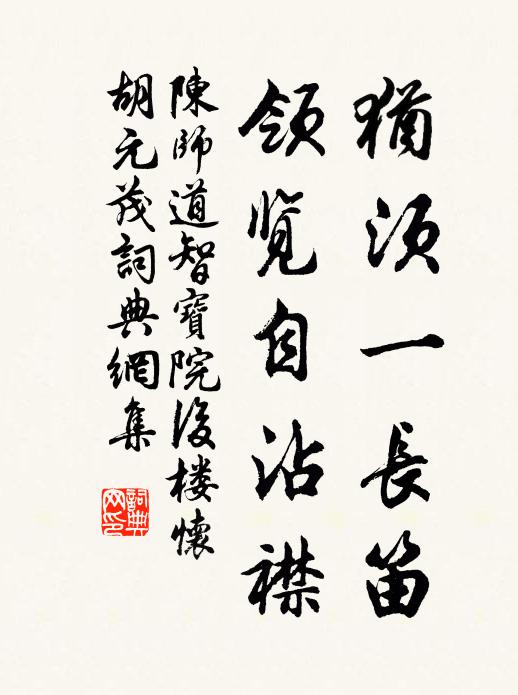 猶須一長笛
領覽自沾襟
陳師道智寶院後樓懷
胡元茂詞典網集
詞典网印